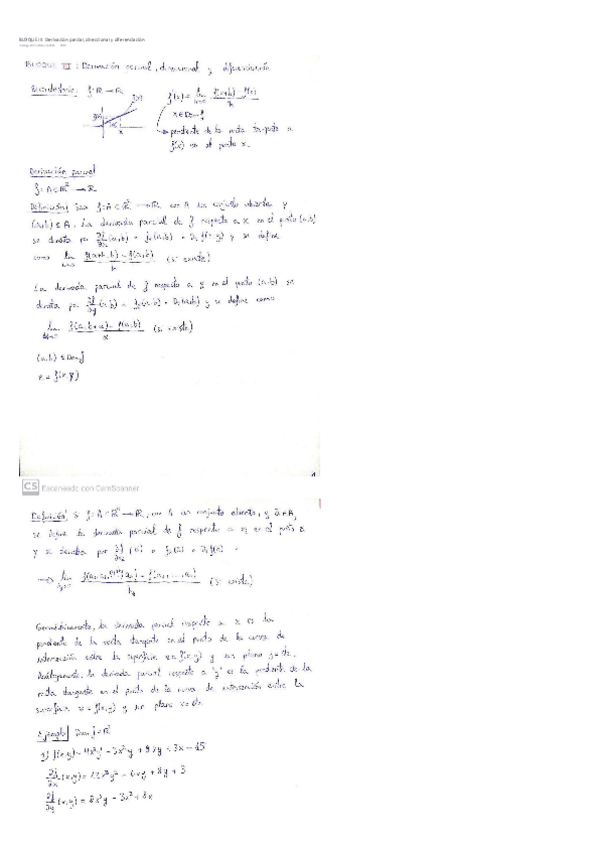 BLOQUE II: Derivación parcial, direccional y diferenciación
BLOQUE II: Derivación parcial, direccional y diferenciación
Recordatorio: f: R → R
f(x)
f'(x) = lim f(x+h) - f(x)
h
x ∈ Dom f
pendiente de la recta tangente a
f(x) en el punto x.
Derivación parcial
f: A ⊂ R² → R
Definición: Sea f: A ⊂ R² → R, con A un conjunto abierto y
(a,b) ∈ A. La derivada parcial de f respecto a x en el punto (a,b)
se denota por ∂f/∂x (a,b) = fx(a,b) = D₁ f(x,y) y se define
como lim f(a+h,b) - f(a,b) (si existe)
h
La derivada parcial de f respecto a y en el punto (a,b) se
denota por ∂f/∂y (a,b) = fy(a,b) = D₂ f(a,b) y se define como
lim f(a,b+h) - f(a,b) (si existe)
(a,b) ∈ Dom f
z = f(x,y)
CS Escaneado con CamScanner
Definición: Si f: A ⊂ Rⁿ → R, con A un conjunto abierto, y a ∈ A,
se define la derivada parcial de f respecto a xi en el punto a
y se denota por ∂f/∂xi (a) =
lim (si existe)
Geométricamente, la derivada parcial respecto a x es la
pendiente de la recta tangente en el punto de la curva de
intersección entre la superficie z = f(x,y) y un plano y = cte.
Análogamente, la derivada parcial respecto a "y" es la pendiente de la
recta tangente en el punto de la curva de intersección entre la
superficie z = f(x,y) y un plano x = cte
Ejemplo: Dom f = R²
1) f(x,y) = 4x³y² - 3x²y + 8xy + 3x - 15
∂f/∂x (x,y) = 12x²y² - 6xy + 8y + 3
∂f/∂y (x,y) = 8x³y - 3x² + 8x